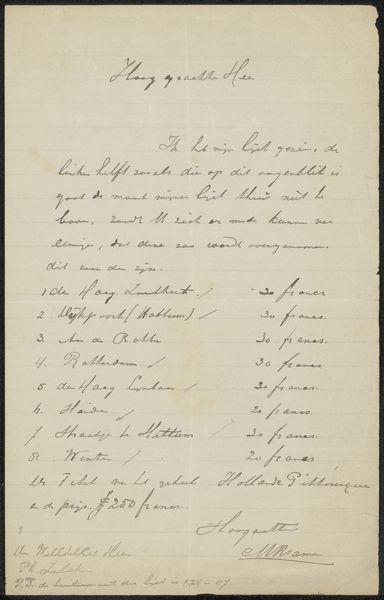 Hoog geachte Heer
Ik heb mijn lijst gezien, de
linker helft zooals die op dit oogenblik is
gaat de maat mijner lijst thuis niet te
boven, zoudt U zich er mede kunnen ver
eenigen, dat deze zoo wordt overgenomen.
dit zou dan zijn.
1 den Haag / 30 francs
2. Dijkpoort (Hattum) / 30 francs.
3. Aan de Rotte 30 francs.
4. Rotterdam / 30 francs
5 den Haag / 30 francs.
6. Heide / 20 francs.
7 Straatje te Hattum / 30 francs.
8. Winter / 20 francs.
De Titel van het geheel Hollande Pittoresque
en de prijs. 250 francs.
Hoogachtend
MKramer
Den WelEdelen Heer
Ph. Zilcken
P.S. de buitenmaat der lijst is 125-87.